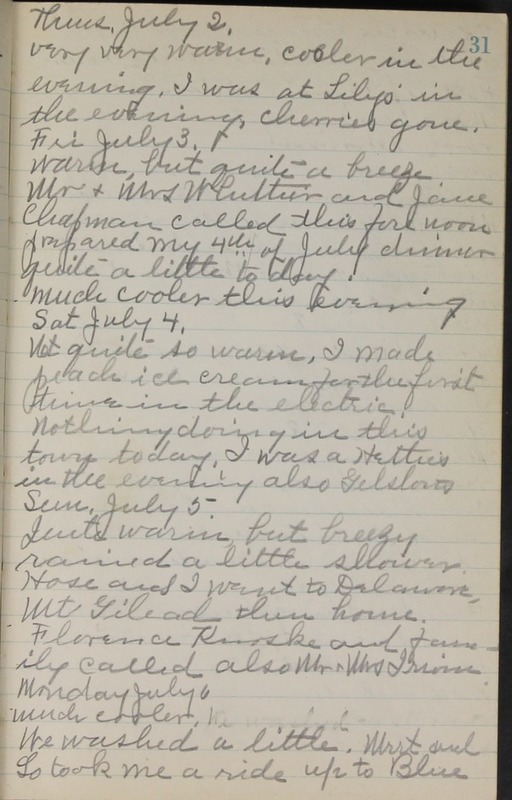 31
Thurs. July 2.
very very warm, cooler in the
evening. I was at Lilys in
the evening, cherries gone.
Fri July 3.
warm, but quite a breeze
Mr & Mrs Whittier and Jane
Chapman called this fore noon
prepared my 4th of July dinner
quite a little to day.
much cooler this evening
Sat July 4.
Not quite so warm, I made
peach ice cream for the first
time in the electric.
Nothing doing in this
town today. I was a Hetties
in the evening also
Sun. July 5.
Quite warm, but breezy
rained a little shower.
and I went to Delaware,
Mt Gilead then home.
Florence and fam-
ily called also Mr & Mrs
Monday July 6
much cooler,
We washed a little. and
took me a ride up to Blue